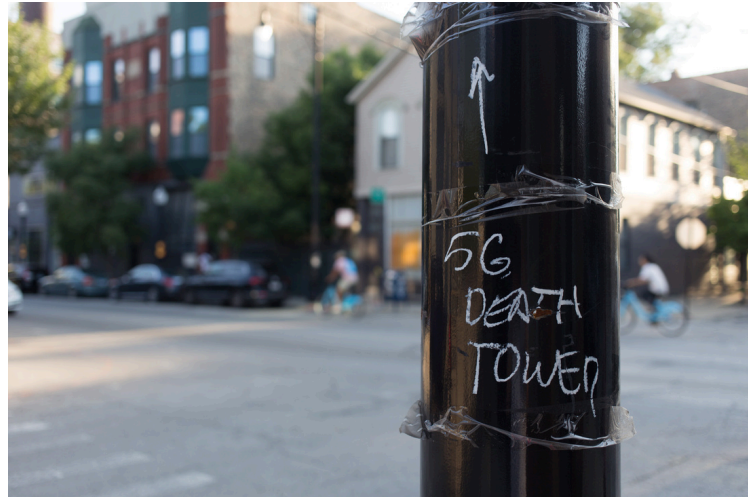 5G
DEATH
TOWER